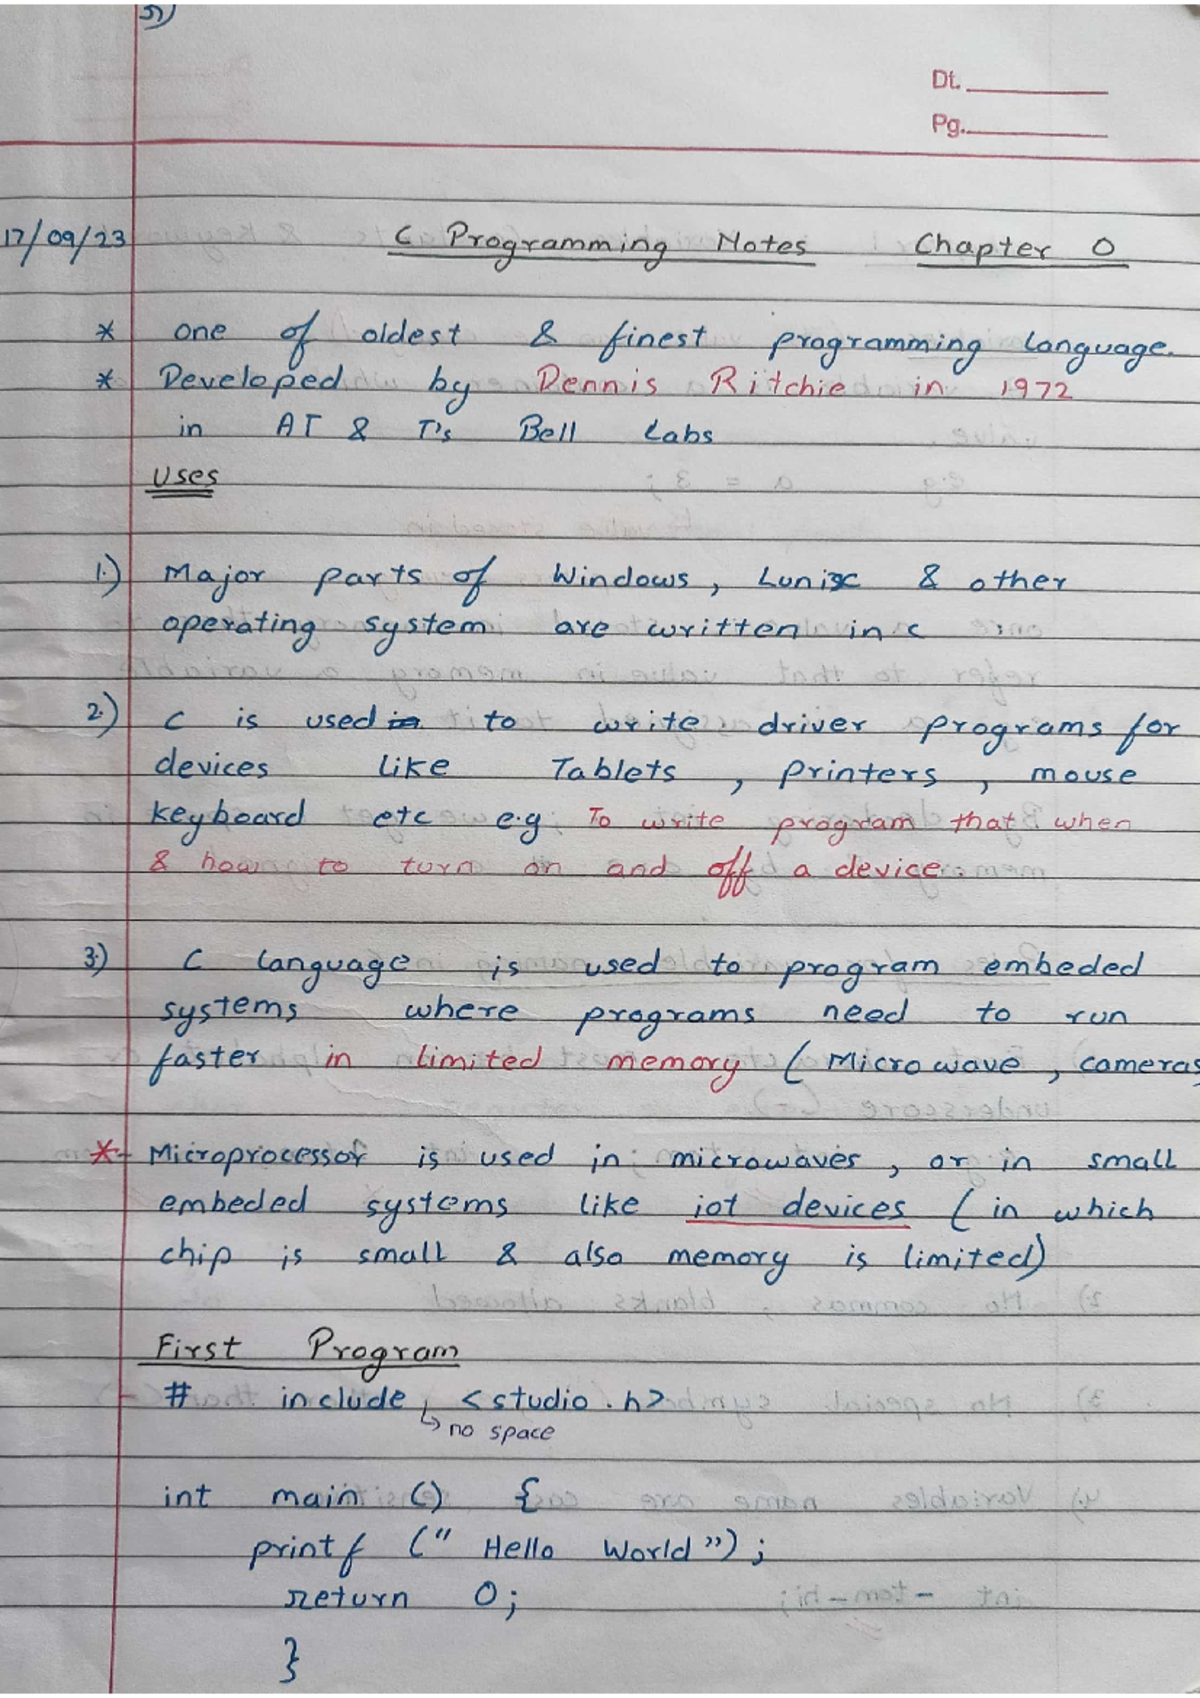 5)
Dt.
Pg.
17/09/23 C Programming Notes Chapter 0
* one of oldest & finest programming language.
* Developed by Dennis Ritchie in 1972
in AT & T's Bell Labs
Uses
1.) Major parts of Windows, Lunix & other
operating system are written in c
2.) C is used in to write driver programs for
devices like Tablets, printers, mouse
keyboard etc e.g To write program that when
& how to turn on and off a device.
3.) C language is used to program embeded
systems where programs need to run
faster in limited memory ( Microwave, cameras
* Microprocessor is used in microwaves, or in small
embeded systems like iot devices ( in which
chip is small & also memory is limited)
First Program
# include <studio.h>
↳ no space
int main () {
printf (" Hello World ");
return 0;
}